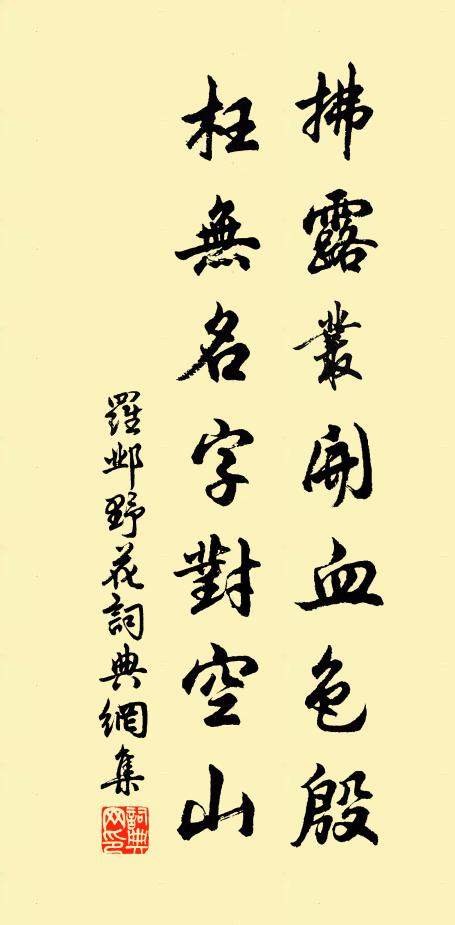 拂露叢開血色殷
枉無名字對空山
羅鄴野花詞典網集
詞典
网印